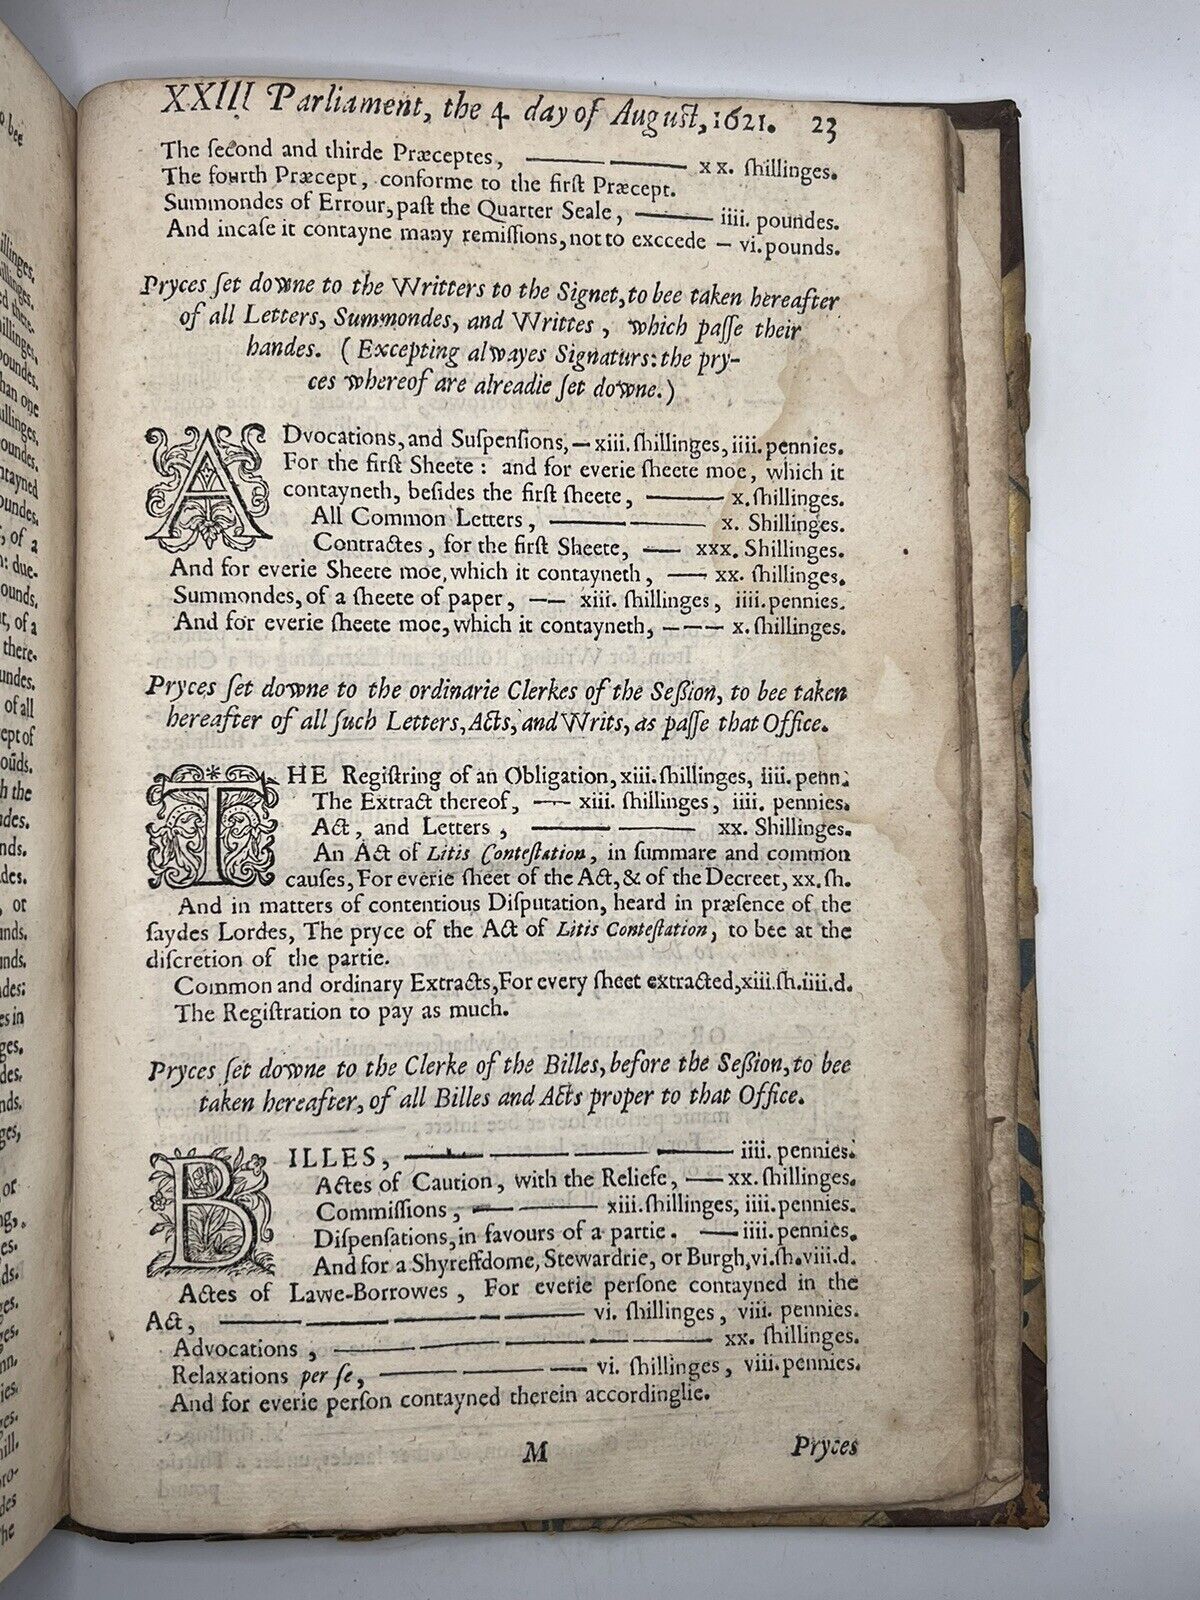 XXIII Parliament, the 4 day of August, 1621. 23
The ſecond and thirde Præceptes, ——— xx. ſhillinges.
The fourth Præcept, conforme to the firſt Præcept.
Summondes of Errour, paſt the Quarter Seale, —— iiii. poundes.
And incaſe it contayne many remiſſions, not to exccede — vi. pounds.
Pryces ſet downe to the Writters to the Signet, to bee taken hereafter
of all Letters, Summondes, and Writtes, which paſſe their
handes. (Excepting alwayes Signaturs: the pry-
ces whereof are alreadie ſet downe.)
ADvocations, and Suſpenſions, — xiii. ſhillinges, iiii. pennies.
For the firſt Sheete: and for everie ſheete moe, which it
contayneth, beſides the firſt ſheete, —— x. ſhillinges.
All Common Letters, —— —— x. Shillinges.
Contractes, for the firſt Sheete, —— xxx. Shillinges.
And for everie Sheete moe, which it contayneth, —— xx. ſhillinges.
Summondes, of a ſheete of paper, —— xiii. ſhillinges, iiii. pennies.
And for everie ſheete moe, which it contayneth, — — — x. ſhillinges.
Pryces ſet downe to the ordinarie Clerkes of the Seßion, to bee taken
hereafter of all ſuch Letters, Acts, and Writs, as paſſe that Office.
THE Regiſtring of an Obligation, xiii. ſhillinges, iiii. penn.
The Extract thereof, —— xiii. ſhillinges, iiii. pennies.
Act, and Letters, —— —— xx. Shillinges.
An Act of Litis Conteſtation, in ſummare and common
cauſes, For everie ſheet of the Act, & of the Decreet, xx. ſh.
And in matters of contentious Diſputation, heard in præſence of the
ſaydes Lordes, The pryce of the Act of Litis Conteſtation, to bee at the
diſcretion of the partie.
Common and ordinary Extracts, For every ſheet extracted, xiii. ſh. iiii. d.
The Regiſtration to pay as much.
Pryces ſet downe to the Clerke of the Billes, before the Seßion, to bee
taken hereafter, of all Billes and Acts proper to that Office.
BILLES, —— —— —— —— iiii. pennies.
Actes of Caution, with the Reliefe, —— xx. ſhillinges.
Commiſſions, —— —— xiii. ſhillinges, iiii. pennies.
Diſpenſations, in favours of a partie. —— iiii. pennies.
And for a Shyreffdome, Stewardrie, or Burgh, vi. ſh. viii. d.
Actes of Lawe-Borrowes, For everie perſone contayned in the
Act, —— —— —— —— vi. ſhillinges, viii. pennies.
Advocations, —— —— —— —— xx. ſhillinges.
Relaxations per ſe, —— —— —— vi. ſhillinges, viii. pennies.
And for everie perſon contayned therein accordinglie.
M Pryces